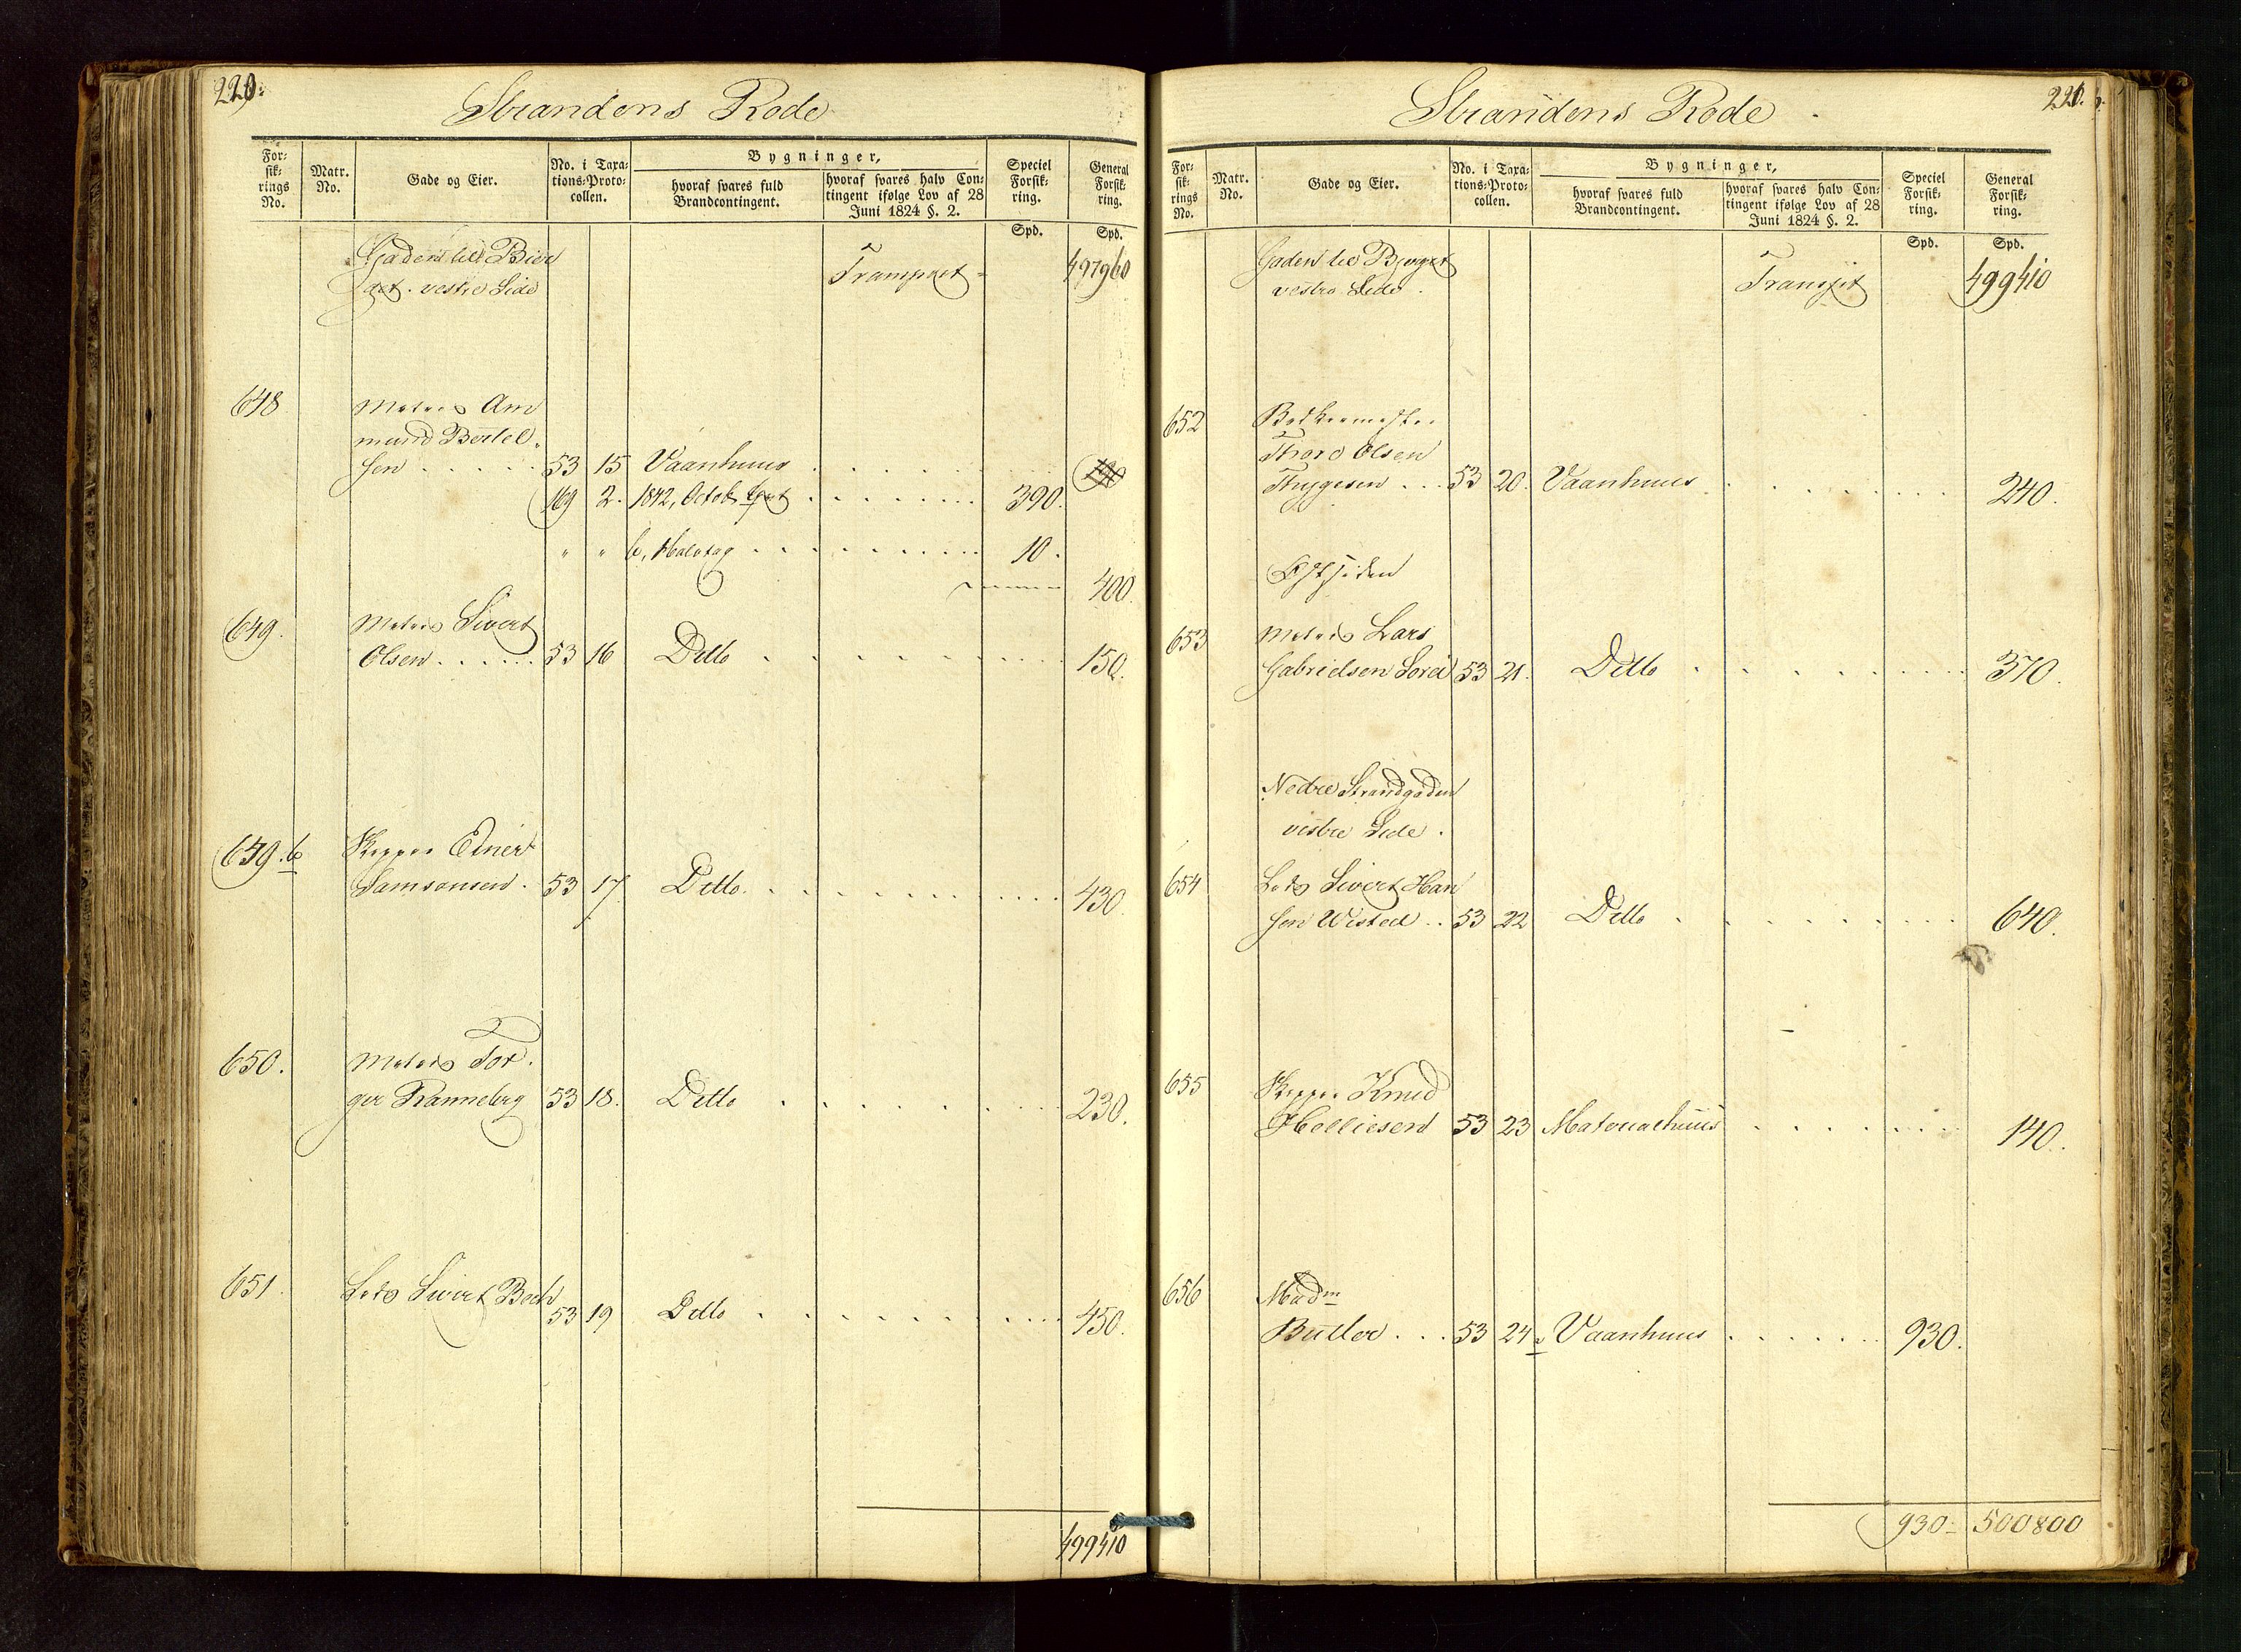 220.
Strandens Rode
For:
sik:
rings
No.
Matr.
No.
Gade og Eier.
No. i Taxa:
tions:Proto:
collen.
Bygninger,
hvoraf svares fuld
Brandcontingent.
hvoraf svares halv Con:
tingent ifølge Lov af 28
Juni 1824 §. 2.
Speciel
Forsik:
ring.
General
Forsik:
ring.
Spd. Spd.
Gaden til Bier
get. vestre Side Transport 497960
648 Matros Am
mund Bertel
sen . . . . . 53 15 Vaanhuus . . . . . 190
169 2. 1842, Octob. . . . . . 390.
" " b, Halvtag . . . . . . 10.
400.
649. Matros Sivert
Olsen . . . . . 53 16 Ditto . . . . . . 150.
649.b Skipper Einert
Samsonsen. 53 17. Ditto . . . . . . 430.
650. Matros Tor
ger Ranneberg 53 18. Ditto . . . . . . 230.
651. Lods Sivert Bech
53 19 Ditto . . . . . . 450.
499410
221.
Strandens Rode
For:
sik:
rings
No.
Matr.
No.
Gade og Eier.
No. i Taxa:
tions:Proto:
collen.
Bygninger,
hvoraf svares fuld
Brandcontingent.
hvoraf svares halv Con:
tingent ifølge Lov af 28
Juni 1824 §. 2.
Speciel
Forsik:
ring.
General
Forsik:
ring.
Spd. Spd.
Gaden til Bjerget
vestre Side. Transpt 499410
652 Bødkermester
Thore Olsen
Thygesen . . . 53 20. Vaanhuus . . . . . . 240.
Østsiden
653 Matros Lars
Gabrielsen 53 21. Ditto . . . . . . 370.
Nedre Strandgaden
vestre Side.
654 Lods Sivert Han
sen Wisted . . 53 22 Ditto . . . . . . 640.
655 Skipper Knud
Helliesen 53 23 Materialhuus . . . . . . 140.
656 Madm
Butler . . . 53 24 a Vaanhuus . . . . . . 930.
930 = 500800